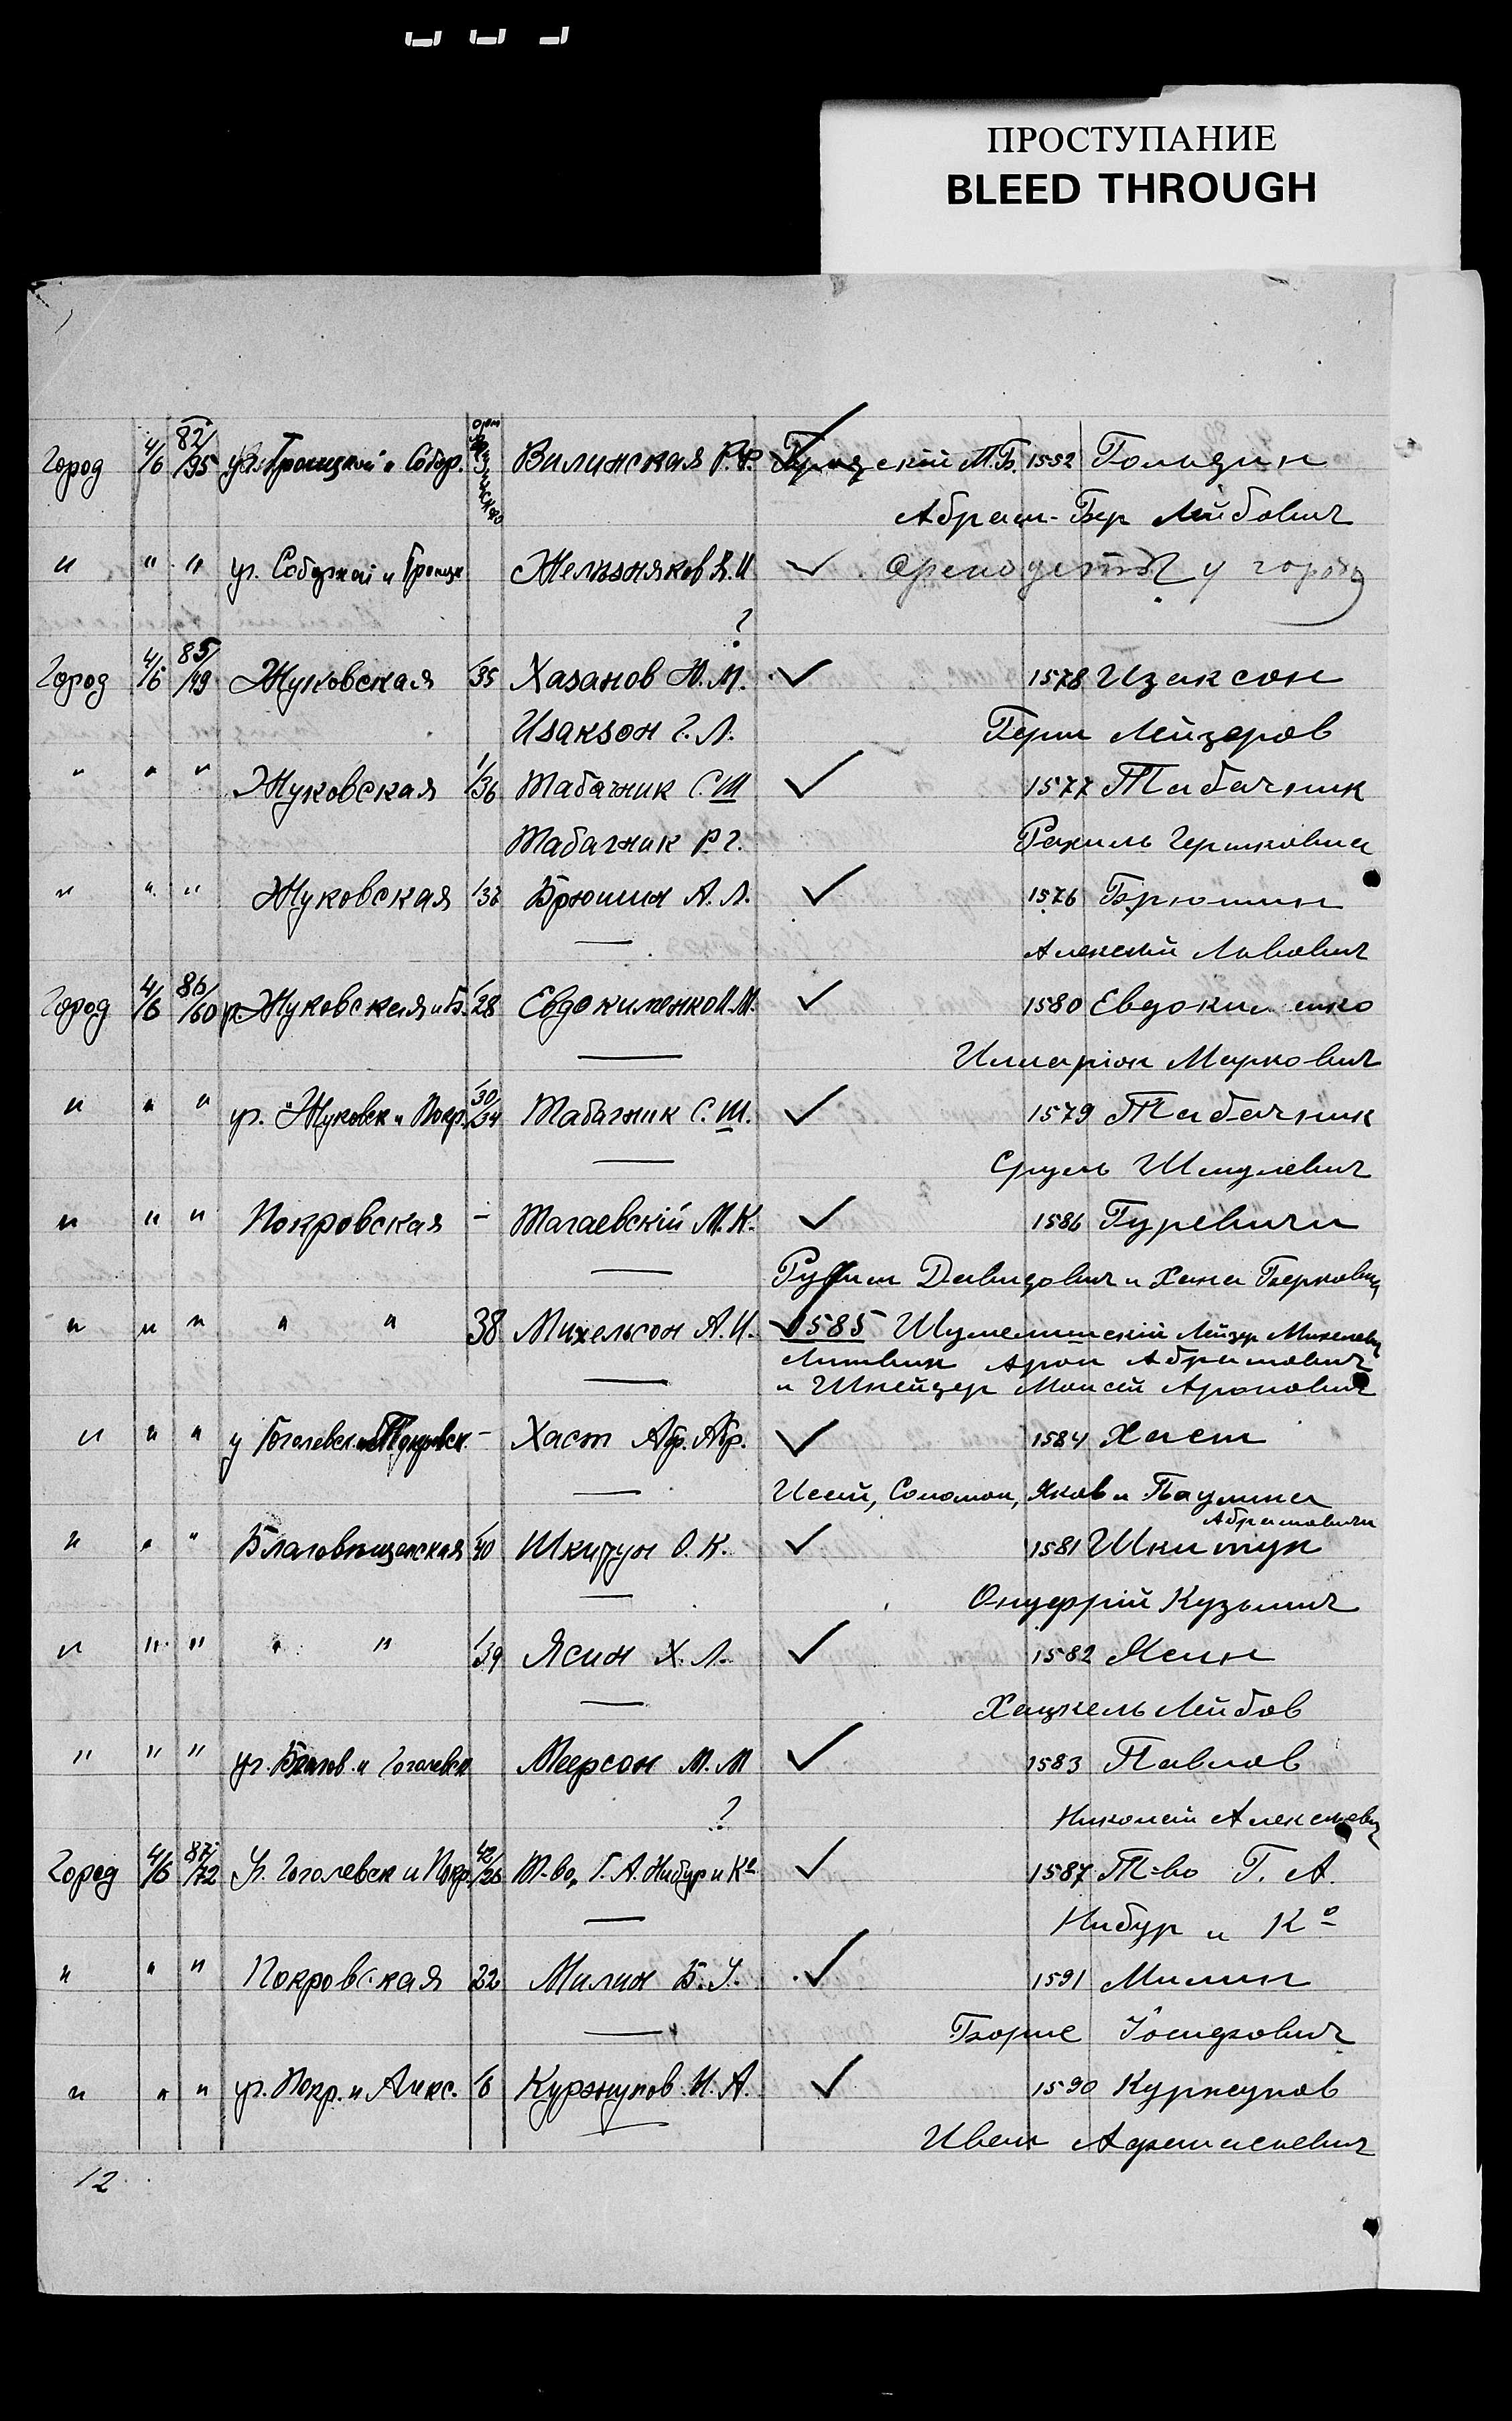 ПРОСТУПАНИЕ
BLEED THROUGH
Город 4/6 82/95 Троицкой и Собор. Вилинская Р.Ф. ский М.Б. 1552 Гольдин
Абрам-Бер Лейбович
" " " уг. Соборной и Троицк Желѣзняков Я.И ✓ у города
?
Город 4/6 85/49 Жуковская 35 Хазанов Ю.М. ✓ 1578 Изаксон
Изаксон Г.Л. Герш Лейзеров
" " " Жуковская 1/36 Табачник С.Ш ✓ 1577 Табачник
Табачник Р.Г. Рахиль Гершковна
" " " Жуковская Брюшин А.Л. ✓ 1576 Брюшин
— Алексѣй Львович
Город 4/6 86/60 Жуковская и Б. 28 Евдокименко И.М. ✓ 1580 Евдокименко
— Илларіон Маркович
" " " уг. Жуковск и Покр. 30/34 Табачник С.Ш. ✓ 1579 Табачник
— Сруль Шмулевич
" " " Покровская – Магаевскій М.К. ✓ 1586 Гуревичи
— Рувим Давидович и Хана Берковна
" " " " " 38 Михельсон А.И. ✓ 1585 Шумелишскій Лейзер Михелевич
Литвин Арон Абрамович
— и Шнейдер Моисей Аронович
" " " у Гоголевск. и Покровск. – Хаст Абр. Абр. ✓ 1584 Хаст
— Исай, Соломон, Яков и Паулина
Абрамовичи
" " " Благовѣщенская 40 Шкитун О.К. ✓ 1581 Шкитун
— Онуфрій Кузьмич
" " " " " 39 Ясин Х.Л. ✓ 1582 Ясин
— Хацкель Лейбов
" " " уг. Благов. и Гоголевск Меерсон М.М ✓ 1583 Павлов
? Николай Алексѣевич
Город 4/6 87/72 У. Гоголевск и Покр. 42/26 Т-во, Г.А. Нибур и Ко ✓ 1587 Т-во Г.А.
— Нибур и Ко
" " " Покровская 22 Милин Б.І. ✓ 1591 Милин
— Борис Іосифович
" " " уг. Покр. и Алекс. Куржупов И.А. ✓ 1590 Куржупов
— Иван Афанасьевич
12